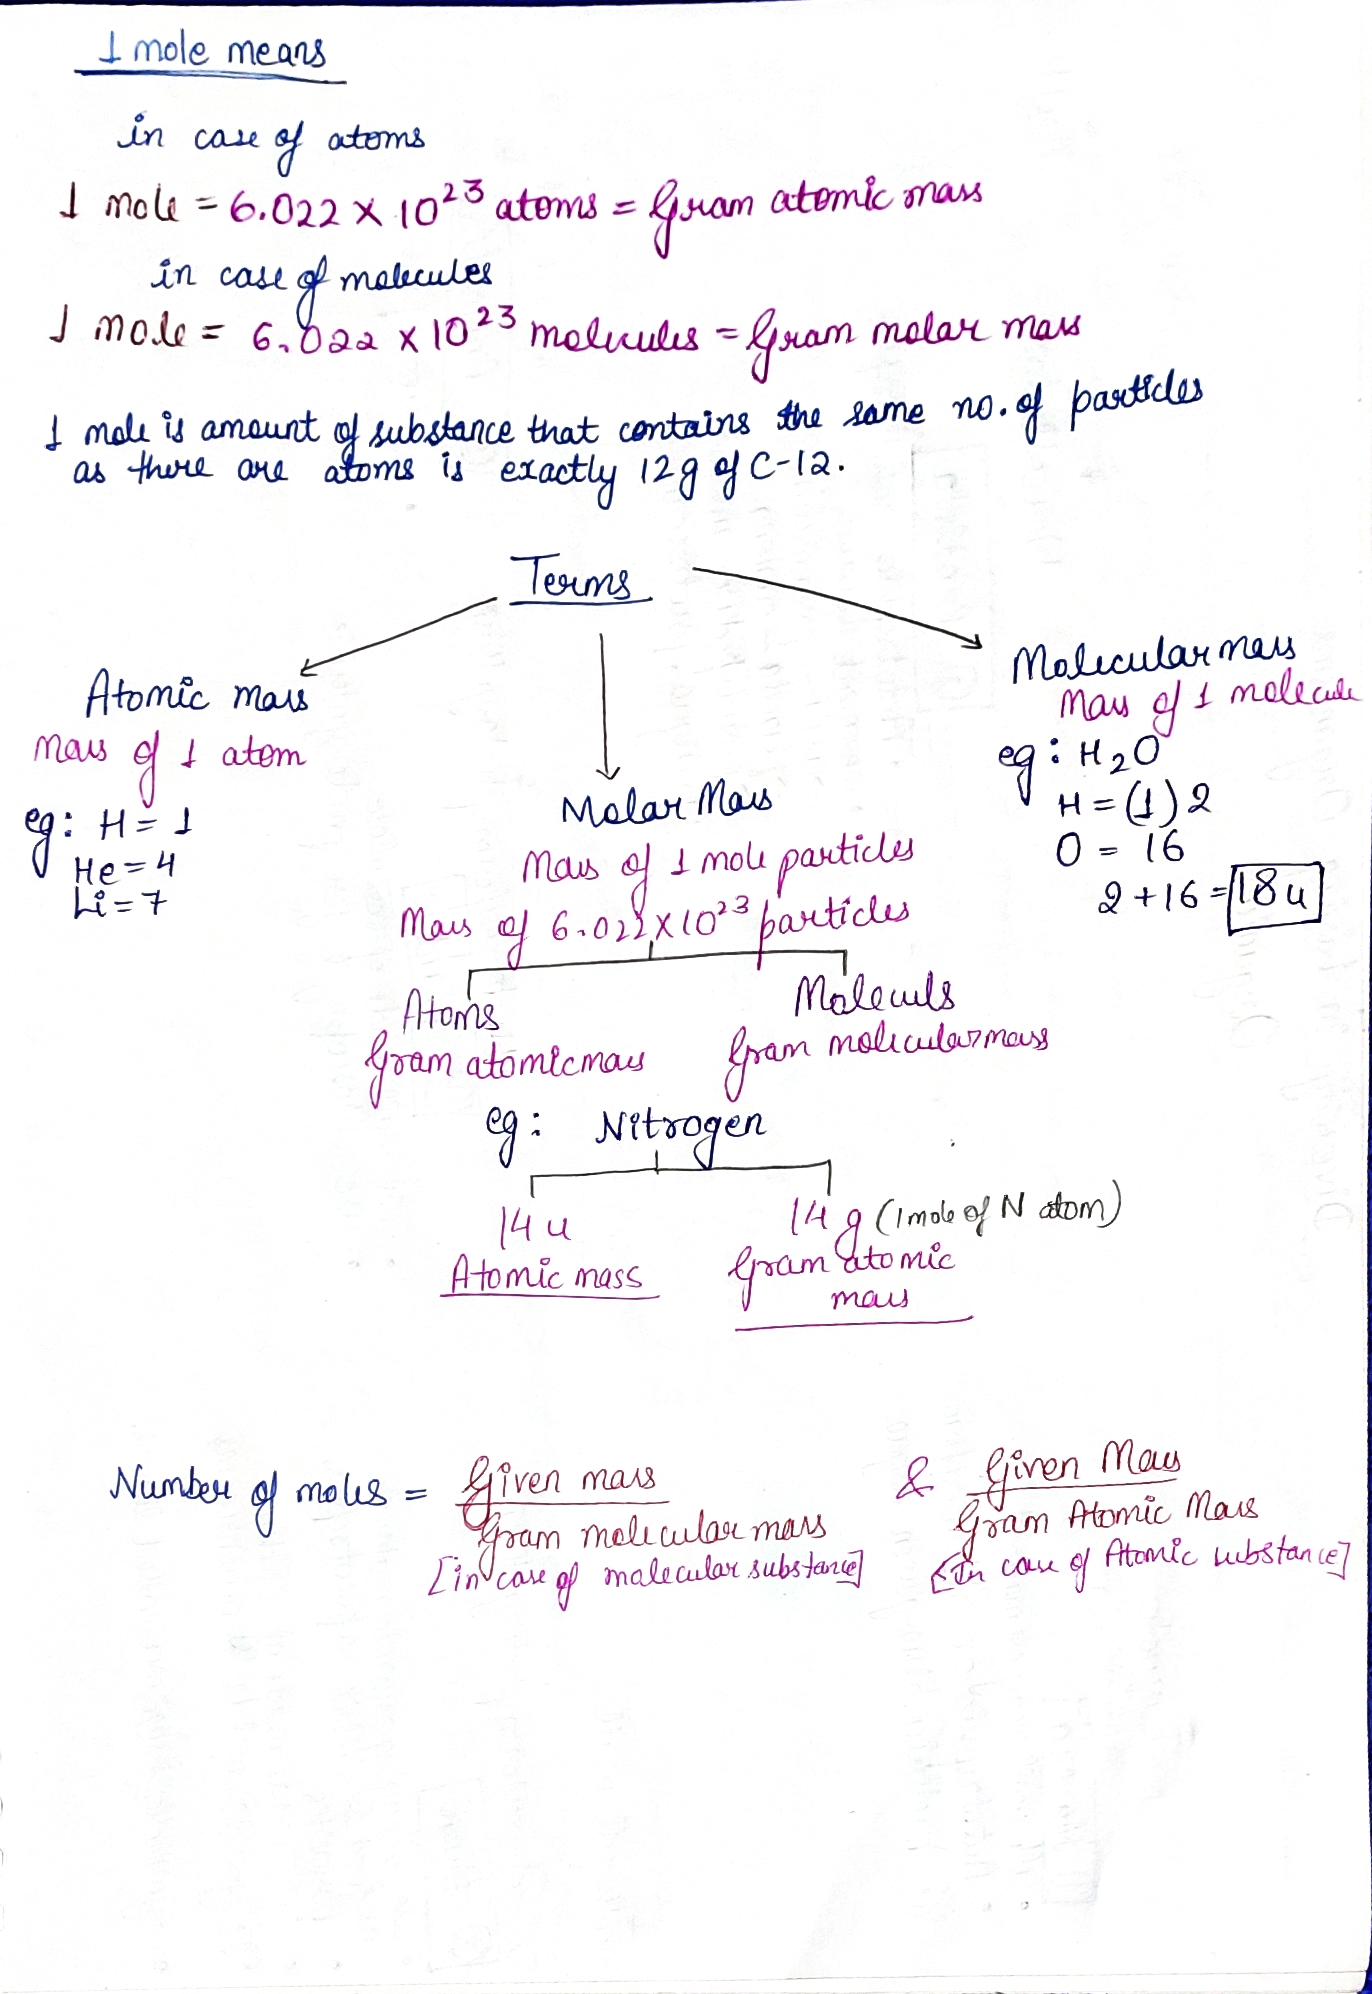 1 mole means
in case of atoms
1 mole = 6.022 × 10²³ atoms = Gram atomic mass
in case of molecules
1 mole = 6.022 × 10²³ molecules = Gram molar mass
1 mole is amount of substance that contains the same no. of particles
as there are atoms is exactly 12g of C-12.
Terms
Atomic mass
Mass of 1 atom
eg: H = 1
He = 4
Li = 7
Molar Mass
Mass of 1 mole particles
Mass of 6.022 × 10²³ particles
Atoms
Gram atomic mass
Moleculs
Gram molecular mass
eg: Nitrogen
14 u
Atomic mass
14 g (1 mole of N atom)
Gram atomic
mass
Molecular mass
Mass of 1 molecule
eg: H₂O
H = (1) 2
O = 16
2 + 16 = 18 u
Number of moles = Given mass
Gram molecular mass
[in case of molecular substance]
& Given Mass
Gram Atomic Mass
[In case of Atomic substance]